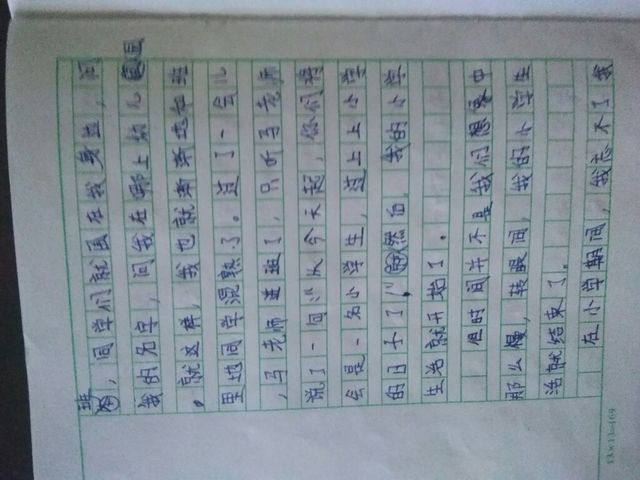 班
，同学们就围在我身边，问
我的名字，问我在哪上幼儿园
。就这样，我也就渐渐地和班
里地同学混熟了。过了一会儿
，马老师进班了，只听马老师
说了一句："从今天起，你们将
会是一名小学生，过上上小学
的日子了！"然后，我的小学
生活就开始了。
但时间并不是我们想象中
那么慢，转眼间，我的小学生
活就结束了。
在小学期间，我忘不了我